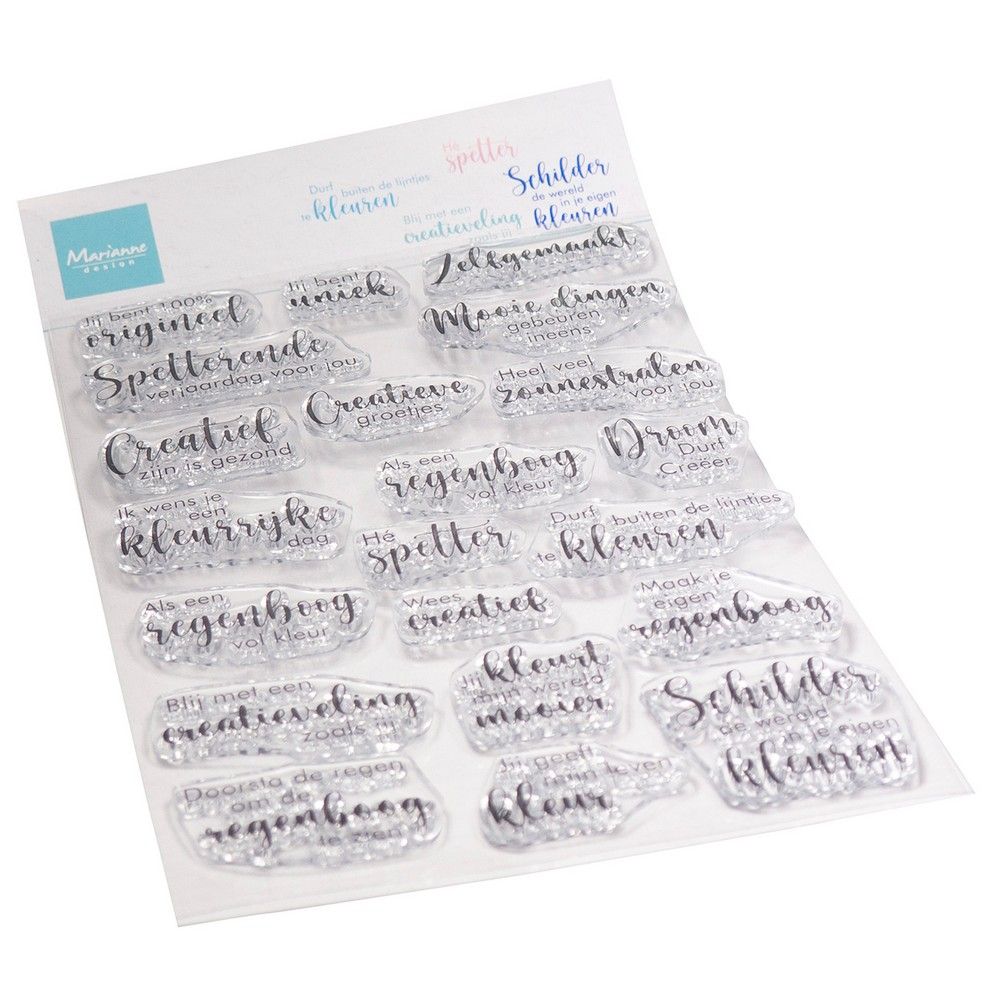 Hé
spetter
Durf buiten de lijntjes
te kleuren
Schilder
de wereld
in je eigen
kleuren
Blij met een
creatieveling
zoals jij
Marianne
design
Zelfgemaakt
Jij bent
uniek
Jij bent 100%
origineel
Mooie dingen
gebeuren
ineens
Spetterende
verjaardag voor jou
Creatieve
groetjes
Heel veel
zonnestralen
voor jou
Creatief
zijn is gezond
Als een
regenboog
vol kleur
Droom
Durf
Creëer
Ik wens je
een
kleurrijke
dag
Hé
spetter
Durf buiten de lijntjes
te kleuren
Als een
regenboog
vol kleur
Wees
creatief
Maak je
eigen
regenboog
Blij met een
creatieveling
zoals jij
Jij kleurt
mijn wereld
mooier
Schilder
de wereld
in je eigen
kleuren
Doorsta de regen
om de
regenboog
te zien
Jij geeft
mijn leven
kleur